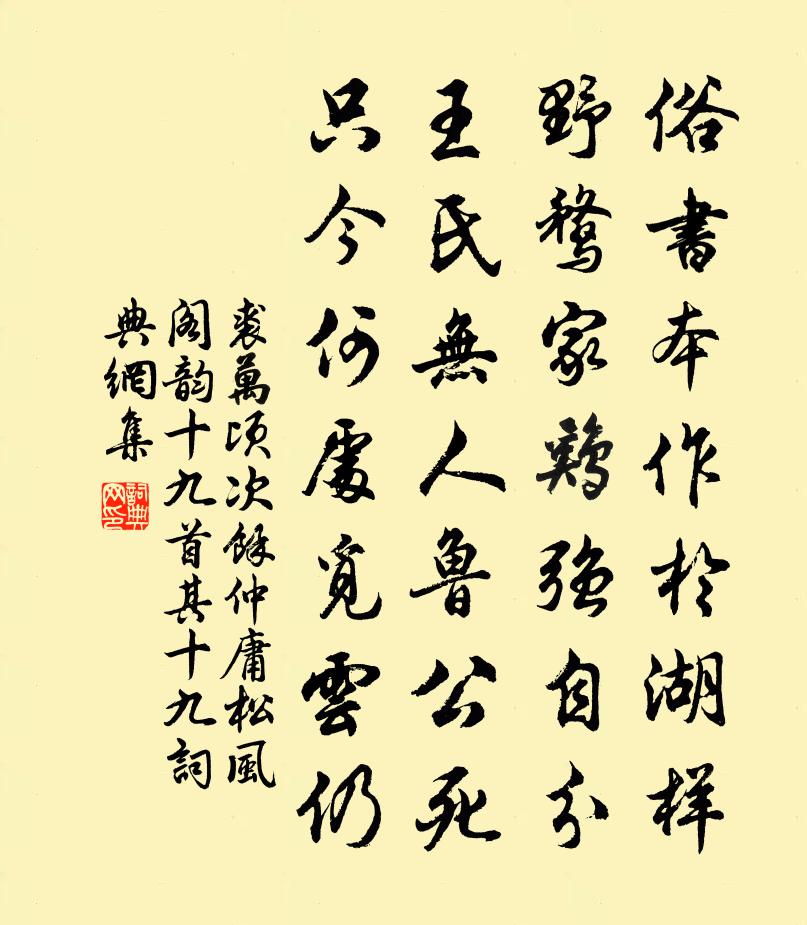 俗書本作於湖样
野鶩家鷄强自分
王氏無人魯公死
只今何處覓雲仍
裘萬頃次餘仲庸松風
阁韵十九首其十九詞
典網集
詞典
网印